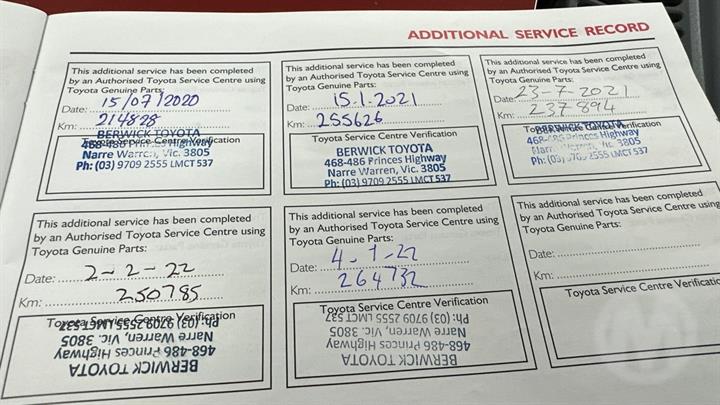 ADDITIONAL SERVICE RECORD
This additional service has been completed
by an Authorised Toyota Service Centre using
Toyota Genuine Parts:
Date: 15/07/2020
Km: 214828
Toyota Service Centre Verification
BERWICK TOYOTA
468-486 Princes Highway
Narre Warren, Vic. 3805
Ph: (03) 9709 2555 LMCT 537
This additional service has been completed
by an Authorised Toyota Service Centre using
Toyota Genuine Parts:
Date: 15.1.2021
Km: 255626
Toyota Service Centre Verification
BERWICK TOYOTA
468-486 Princes Highway
Narre Warren, Vic. 3805
Ph: (03) 9709 2555 LMCT 537
This additional service has been completed
by an Authorised Toyota Service Centre using
Toyota Genuine Parts:
Date: 23-7-2021
Km: 237894
Toyota Service Centre Verification
BERWICK TOYOTA
468-486 Princes Highway
Narre Warren, Vic. 3805
Ph: (03) 9709 2555 LMCT 537
This additional service has been completed
by an Authorised Toyota Service Centre using
Toyota Genuine Parts:
Date: 2-2-22
Km: 250785
Toyota Service Centre Verification
BERWICK TOYOTA
468-486 Princes Highway
Narre Warren, Vic. 3805
Ph: (03) 9709 2555 LMCT 537
This additional service has been completed
by an Authorised Toyota Service Centre using
Toyota Genuine Parts:
Date: 4-7-22
Km: 264732
Toyota Service Centre Verification
BERWICK TOYOTA
468-486 Princes Highway
Narre Warren, Vic. 3805
Ph: (03) 9709 2555 LMCT 537
This additional service has been completed
by an Authorised Toyota Service Centre using
Toyota Genuine Parts:
Date:
Km:
Toyota Service Centre Verification